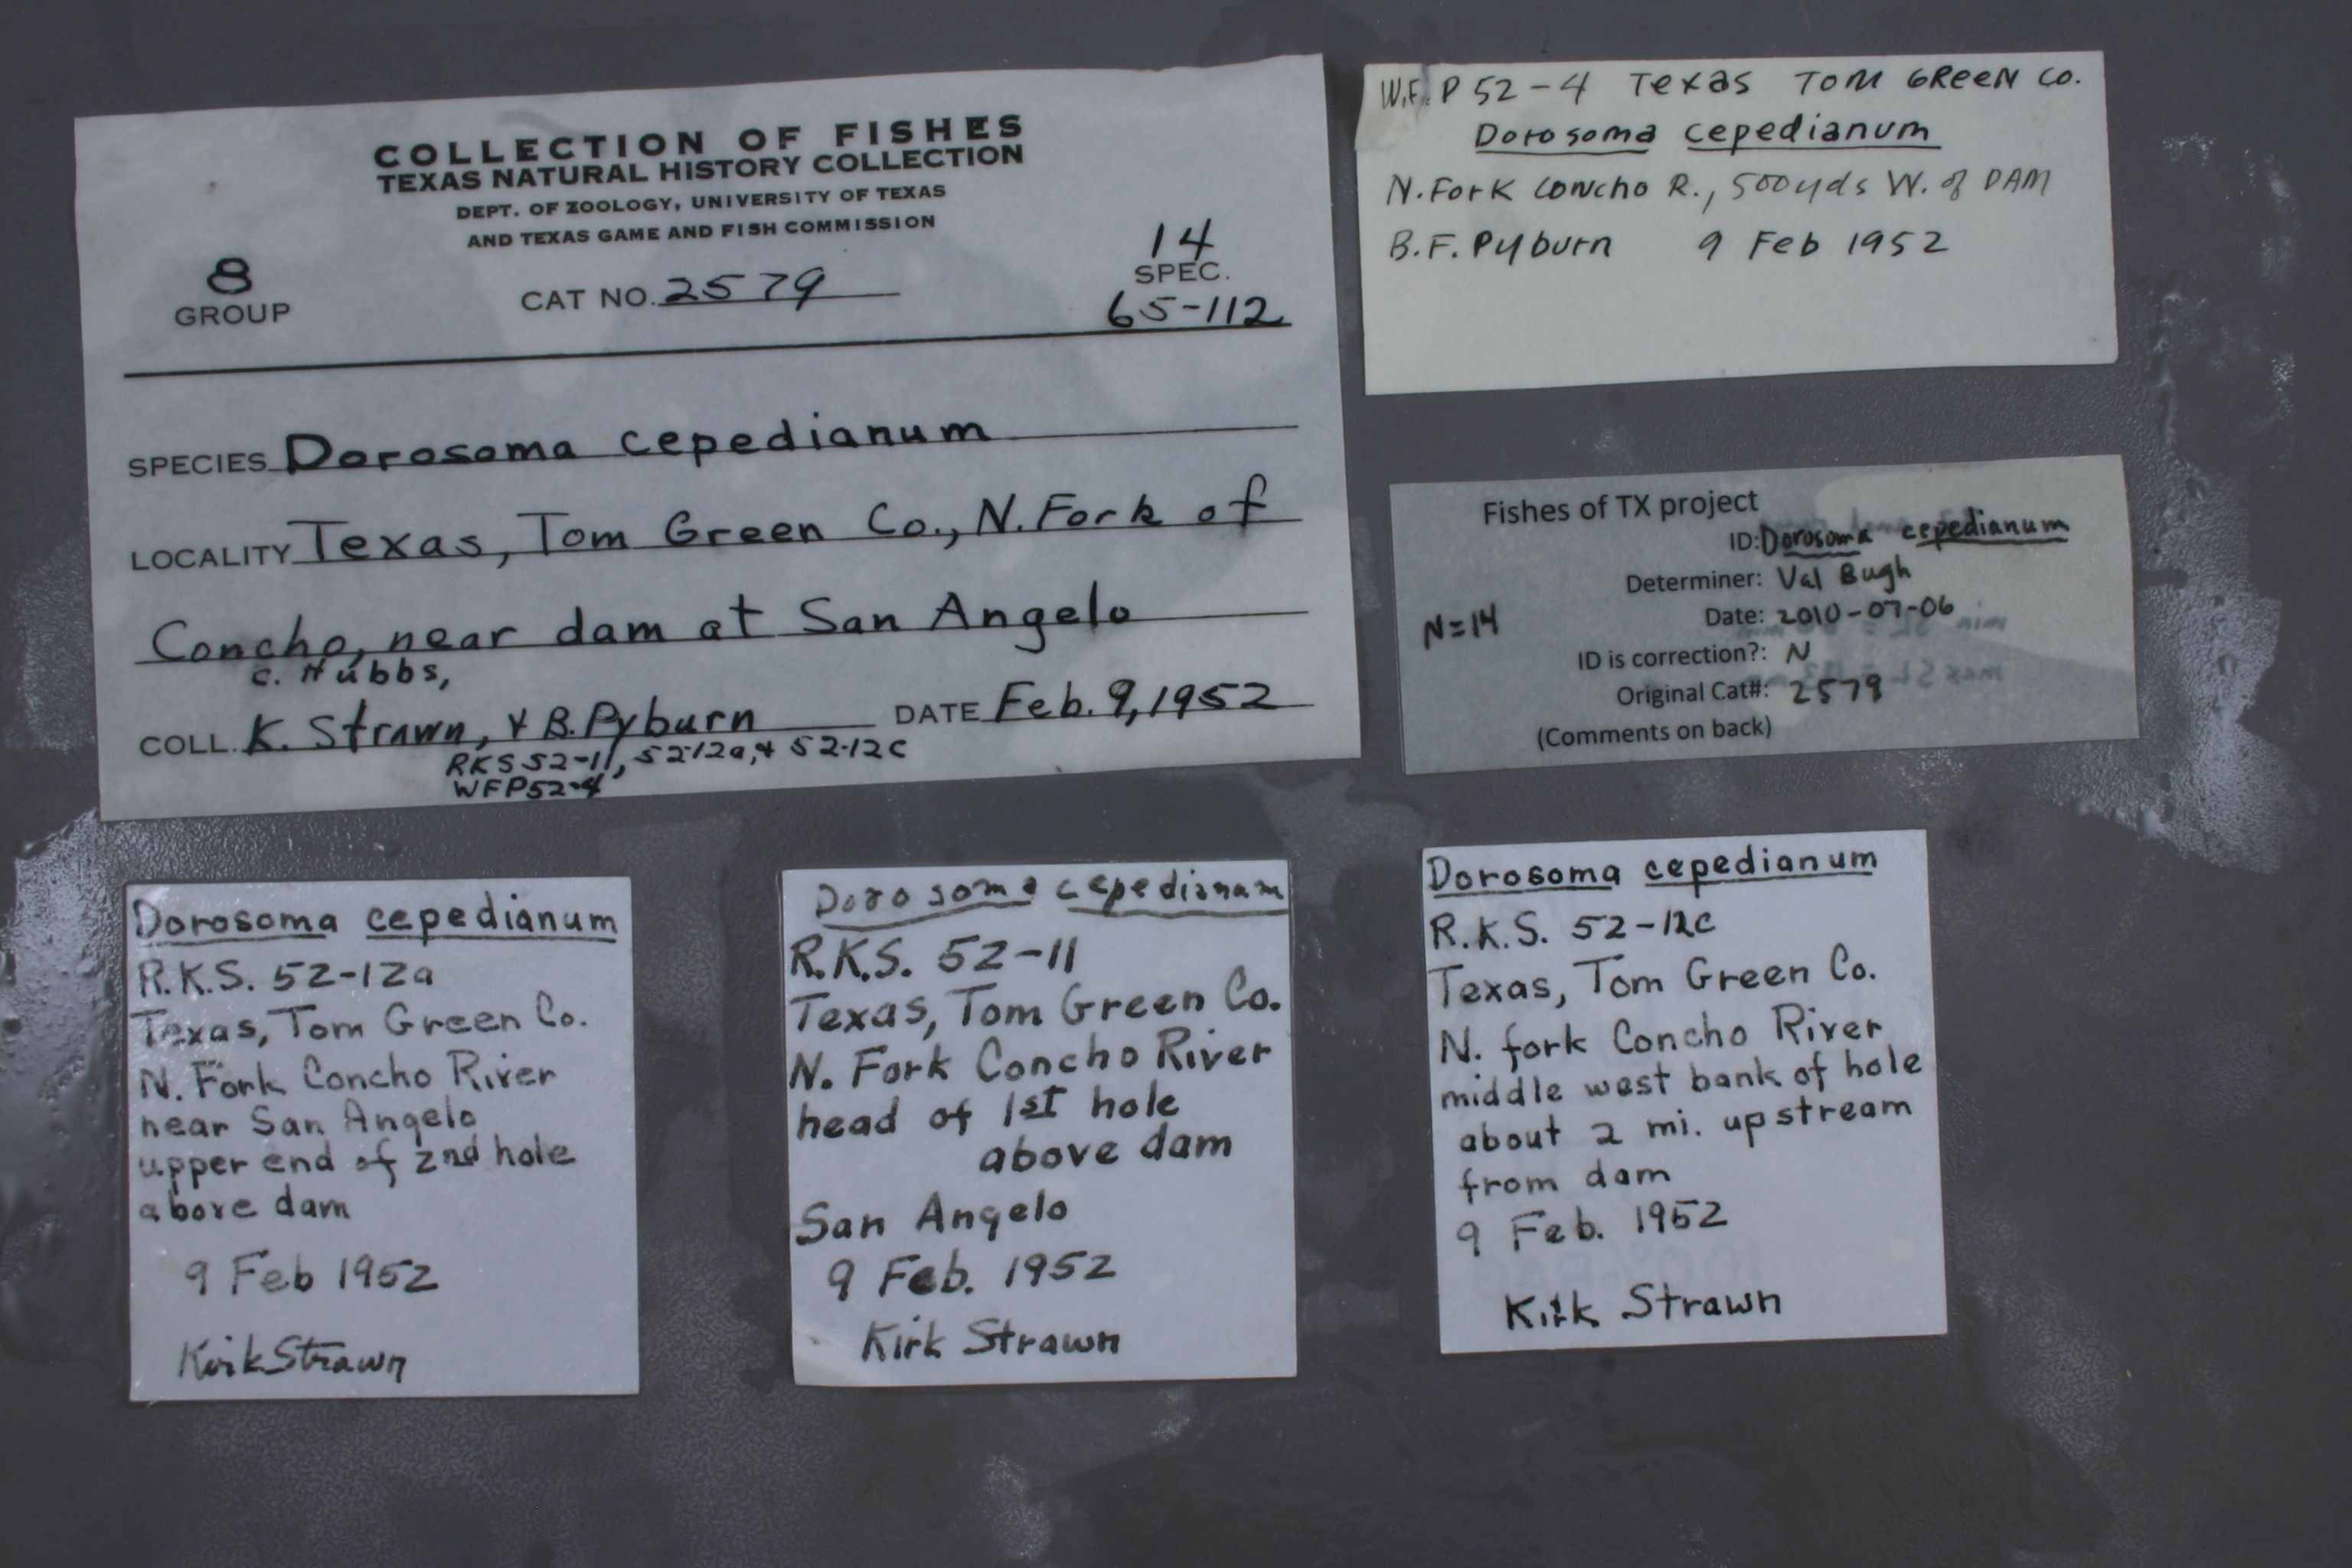 COLLECTION OF FISHES
TEXAS NATURAL HISTORY COLLECTION
DEPT. OF ZOOLOGY, UNIVERSITY OF TEXAS
AND TEXAS GAME AND FISH COMMISSION
8
GROUP
CAT NO. 2579
14
SPEC.
65-112
SPECIES Dorosoma cepedianum
LOCALITY Texas, Tom Green Co., N. Fork of
Concho, near dam at San Angelo
C. Hubbs,
COLL. K. Strawn, & B. Pyburn DATE Feb. 9, 1952
RKS 52-11, 52-12a, & 52-12c
WFP52-4
W.F.P 52-4 Texas Tom Green Co.
Dorosoma cepedianum
N. Fork Concho R., 500yds W. of DAM
B.F. Pyburn 9 Feb 1952
Fishes of TX project
ID: Dorosoma cepedianum
Determiner: Val Bugh
N=14
Date: 2010-07-06
ID is correction?: N
Original Cat#: 2579
(Comments on back)
Dorosoma cepedianum
R.K.S. 52-12a
Texas, Tom Green Co.
N. Fork Concho River
near San Angelo
upper end of 2nd hole
above dam
9 Feb 1952
Kirk Strawn
Dorosoma cepedianum
R.K.S. 52-11
Texas, Tom Green Co.
N. Fork Concho River
head of 1st hole
above dam
San Angelo
9 Feb. 1952
Kirk Strawn
Dorosoma cepedianum
R.K.S. 52-12c
Texas, Tom Green Co.
N. fork Concho River
middle west bank of hole
about 2 mi. upstream
from dam
9 Feb. 1952
Kirk Strawn